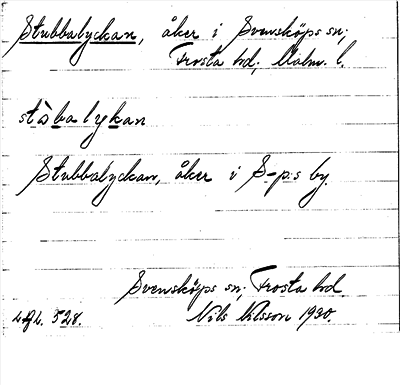 Stubbalyckan, åker i Svensköps sn;
Frosta hd, Malm. l.
stòbalykan
Stubbalyckan, åker i S-p:s by.
Svensköps sn; Frosta hd
L.A.L. 528. Nils Nilsson 1930.